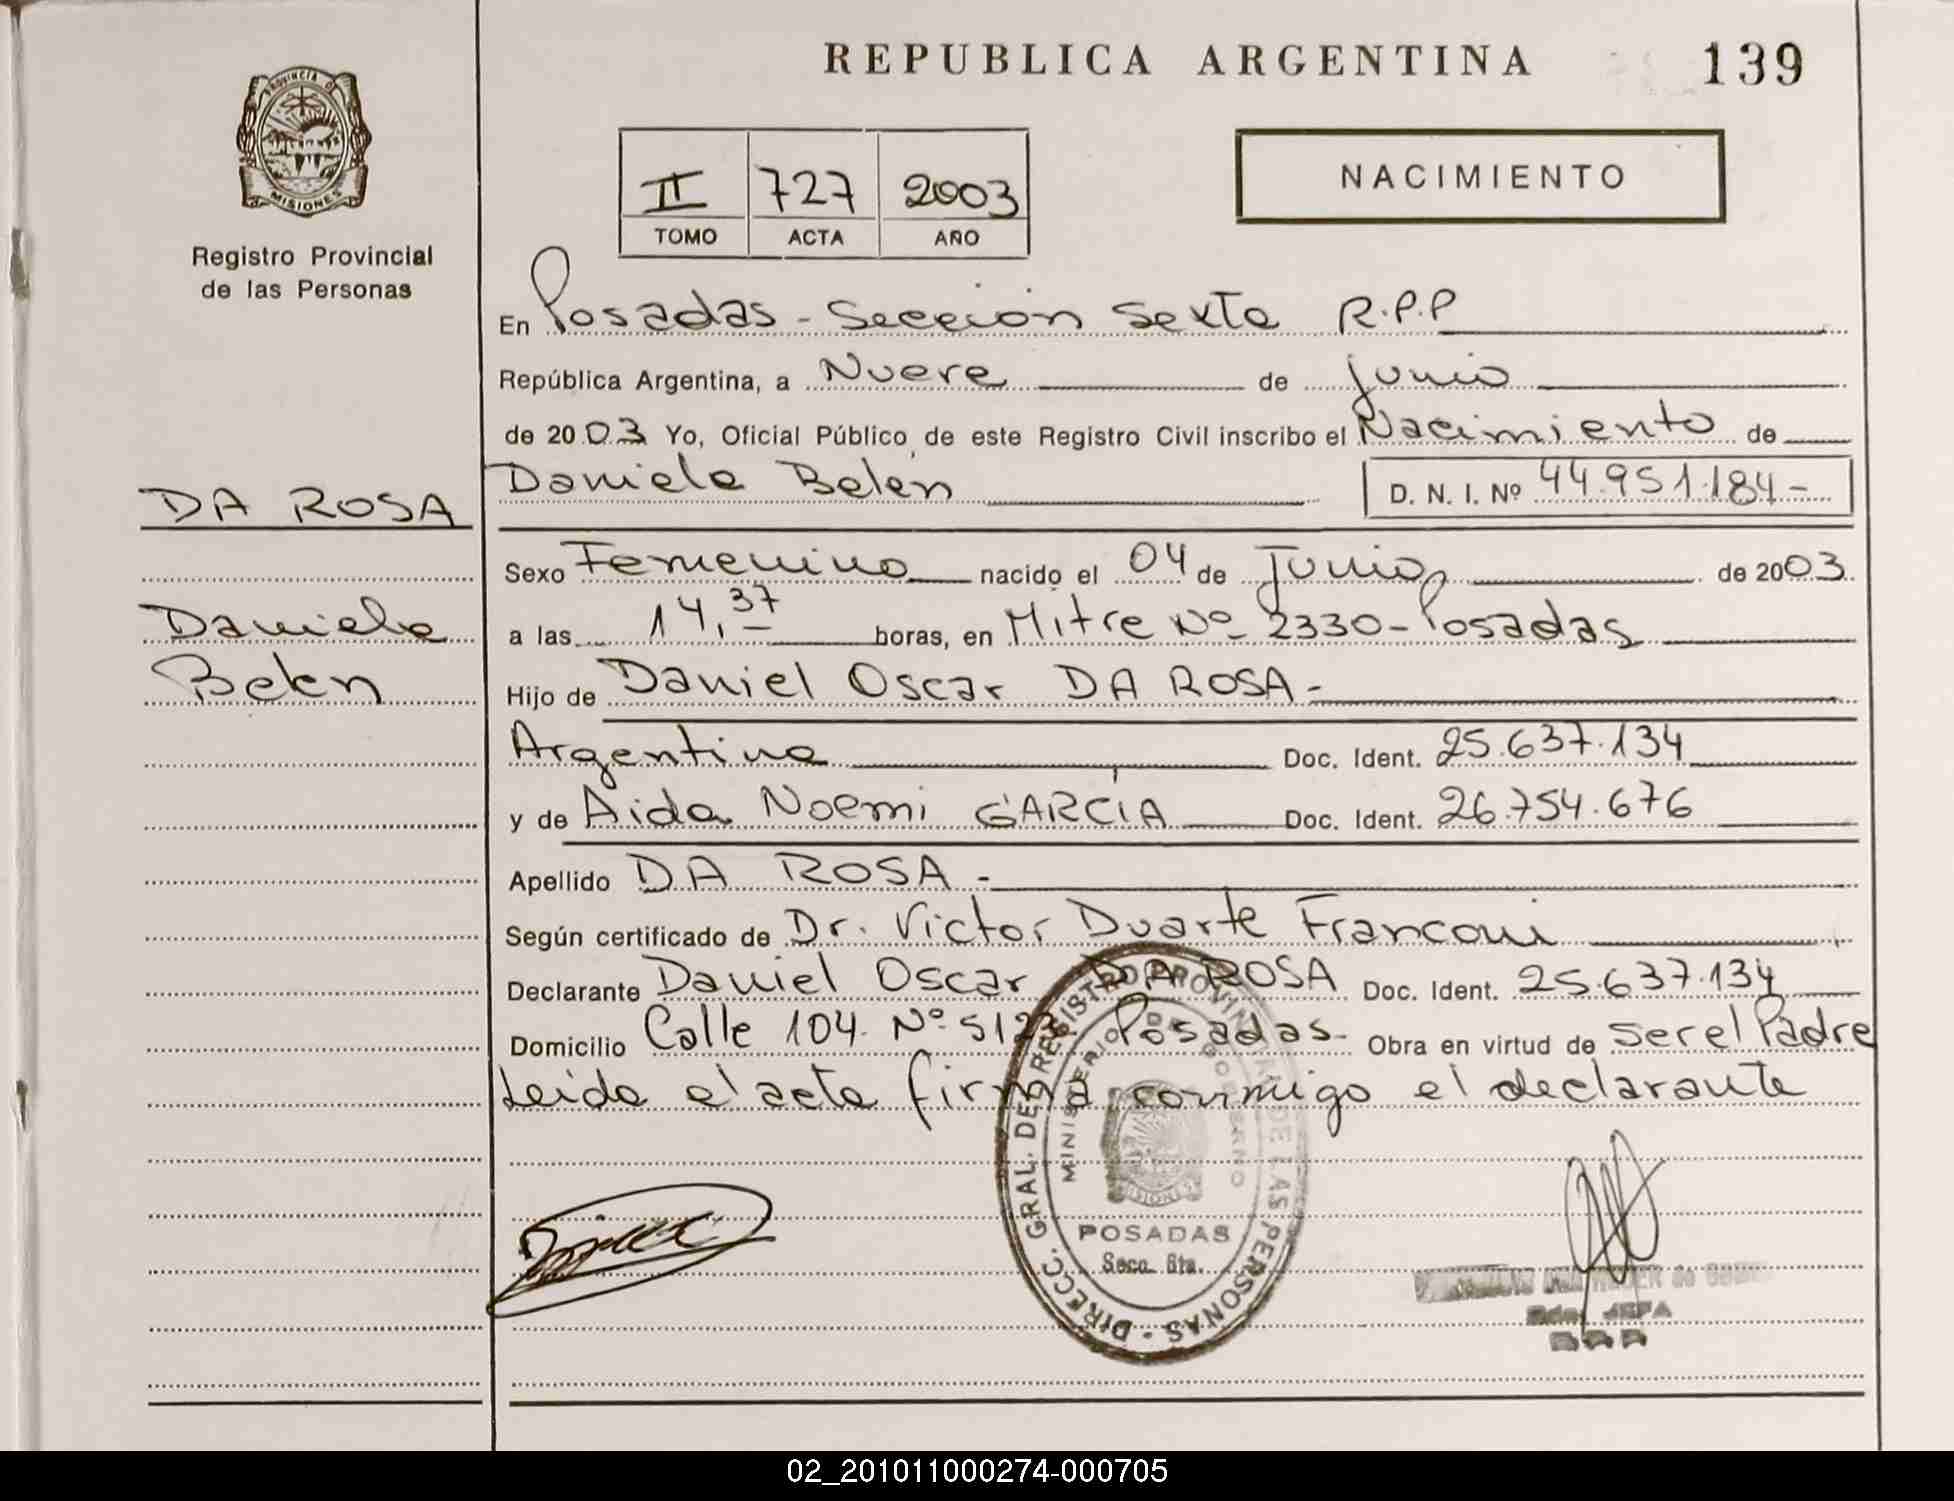 REPUBLICA ARGENTINA
139
PROVINCIA DE
MISIONES
Registro Provincial
de las Personas
II 727 2003
TOMO ACTA AÑO
NACIMIENTO
En Posadas - Sección Sexta R.P.P
República Argentina, a Nueve de Junio
de 2003 Yo, Oficial Público de este Registro Civil inscribo el Nacimiento de
DA ROSA
Daniela Belén
D. N. I. Nº 44.951.184-
Sexo Femenino nacido el 04 de Junio de 2003
Daniela
Belén
a las 14,37 horas, en Mitre Nº 2330-Posadas
Hijo de Daniel Oscar DA ROSA-
Argentina Doc. Ident. 25.637.134
y de Aida Noemi GARCÍA Doc. Ident. 26.754.676
Apellido DA ROSA-
Según certificado de Dr. Victor Duarte Franconi
Declarante Daniel Oscar DA ROSA Doc. Ident. 25.637.134
Domicilio Calle 104 Nº Posadas- Obra en virtud de ser el Padre
Leída el acta firma conmigo el declarante
DIRECC. GRAL. DEL REGISTRO PROVINCIAL DE LAS PERSONAS
MINISTERIO DE GOBIERNO
MISIONES
POSADAS
Secc. 6ta.
JEFA
02_201011000274-000705